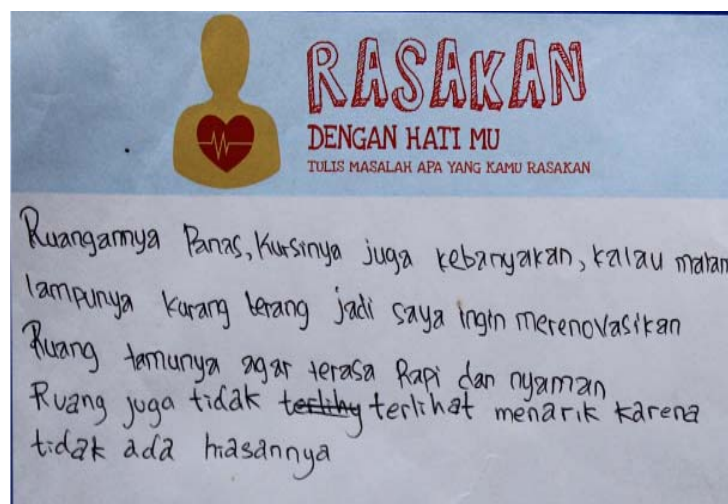 RASAKAN
DENGAN HATI MU
TULIS MASALAH APA YANG KAMU RASAKAN
Ruangannya Panas, Kursinya juga kebanyakan, kalau malam
lampunya kurang terang jadi saya ingin merenovasikan
Ruang tamunya agar terasa Rapi dan nyaman
Ruang juga tidak terlihat menarik karena
tidak ada hiasannya